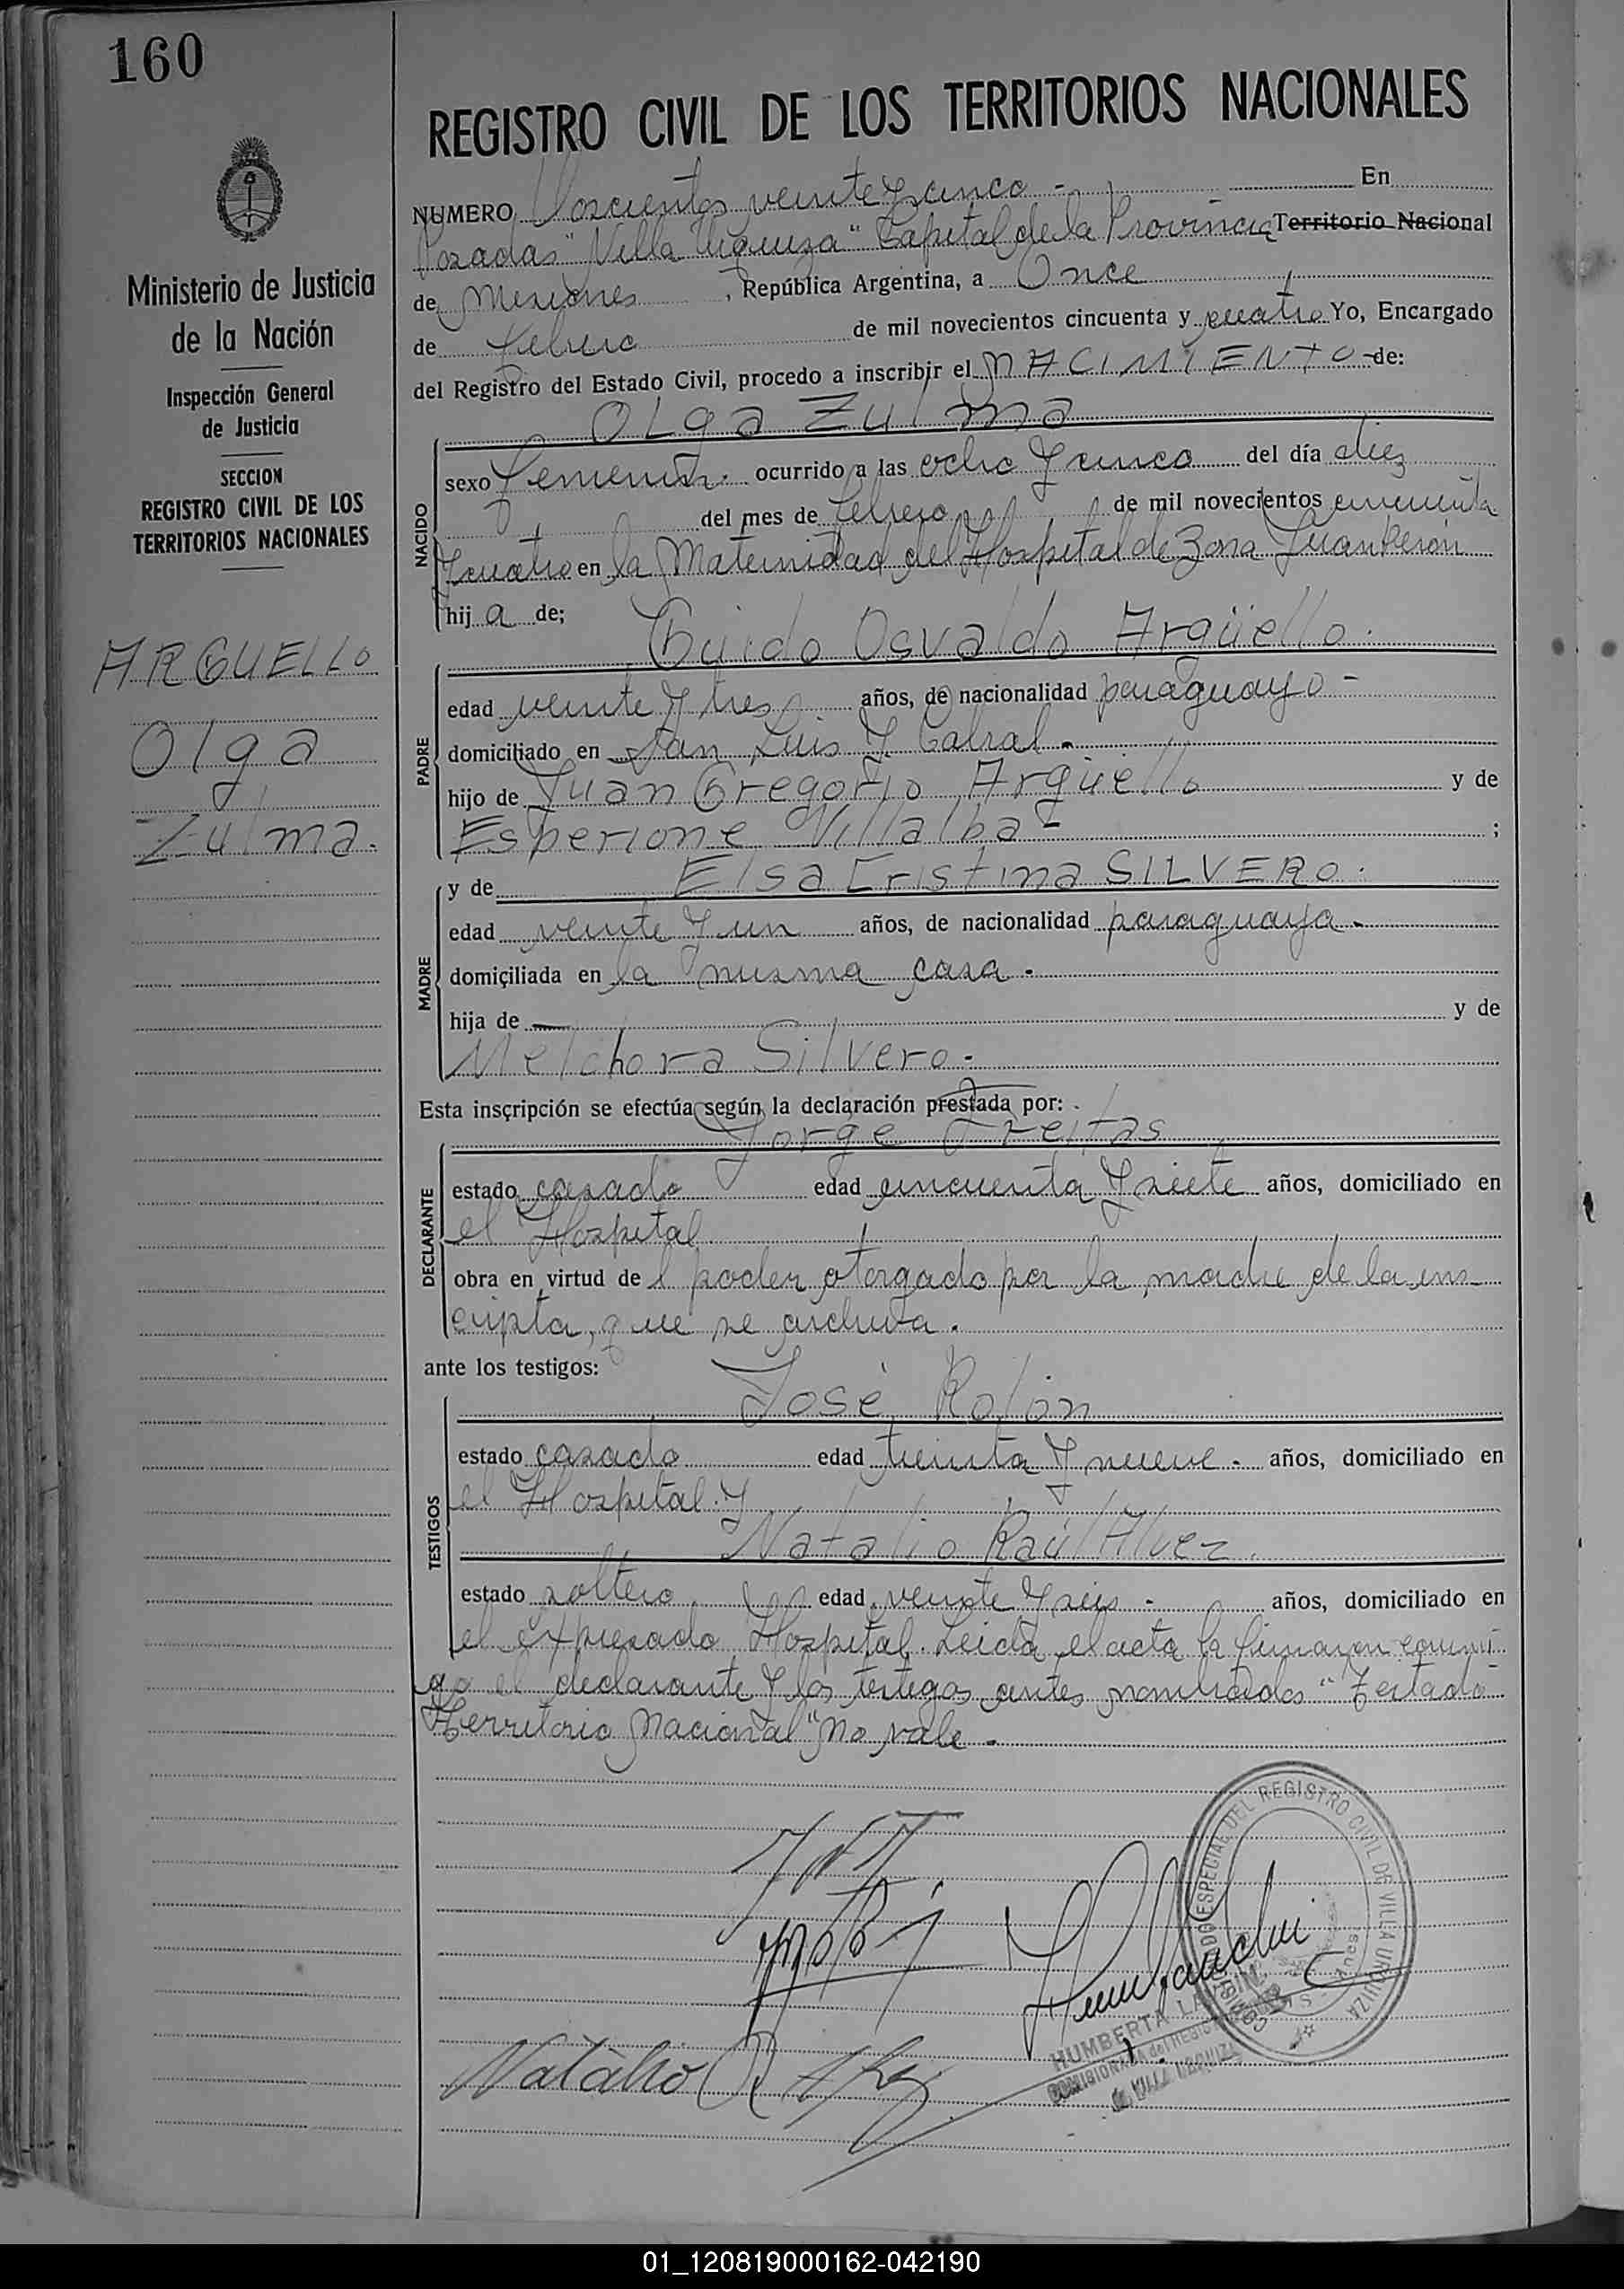 160
REGISTRO CIVIL DE LOS TERRITORIOS NACIONALES
Ministerio de Justicia
de la Nación
Inspección General
de Justicia
SECCION
REGISTRO CIVIL DE LOS
TERRITORIOS NACIONALES
ARGUELLO
Olga
Zulma.
NUMERO Doscientos veinte y cinco - En
Posadas "Villa Urquiza" Capital de la Provincia Territorio Nacional
de Misiones, República Argentina, a Once
de febrero de mil novecientos cincuenta y cuatro Yo, Encargado
del Registro del Estado Civil, procedo a inscribir el NACIMIENTO de:
Olga Zulma
NACIDO
sexo femenino. ocurrido a las ocho y cinco del día diez
del mes de febrero de mil novecientos cincuenta
y cuatro en la Maternidad del Hospital de Zona Juan Perón
hij a de;
Guido Osvaldo Argüello.
PADRE
edad veinte y tres años, de nacionalidad paraguayo -
domiciliado en San Luis y Cabral -
hijo de Juan Gregorio Argüello y de
Esperione Villalba - ;
MADRE
y de Elsa Cristina SILVERO.
edad veinte y un años, de nacionalidad paraguaya -
domiciliada en la misma casa -
hija de — y de
Melchora Silvero -
Esta inscripción se efectúa según la declaración prestada por:
Jorge Freitas
DECLARANTE
estado casado edad cincuenta y siete años, domiciliado en
el Hospital
obra en virtud de l poder otorgado por la madre de la ins-
cripta, que se archiva.
ante los testigos:
José Rolón
TESTIGOS
estado casado edad treinta y nueve - años, domiciliado en
el Hospital y
Natalio Raúl Alvez
estado soltero edad veinte y seis - años, domiciliado en
el expresado Hospital. Leida el acta la firmaron conmi-
go el declarante y los testigos antes nombrados "Testado
Territorio Nacional" No vale -
Natalio R
ESPECIAL DEL REGISTRO CIVIL DE VILLA URQUIZA
HUMBERTA
VILLA URQUIZA
01_120819000162-042190